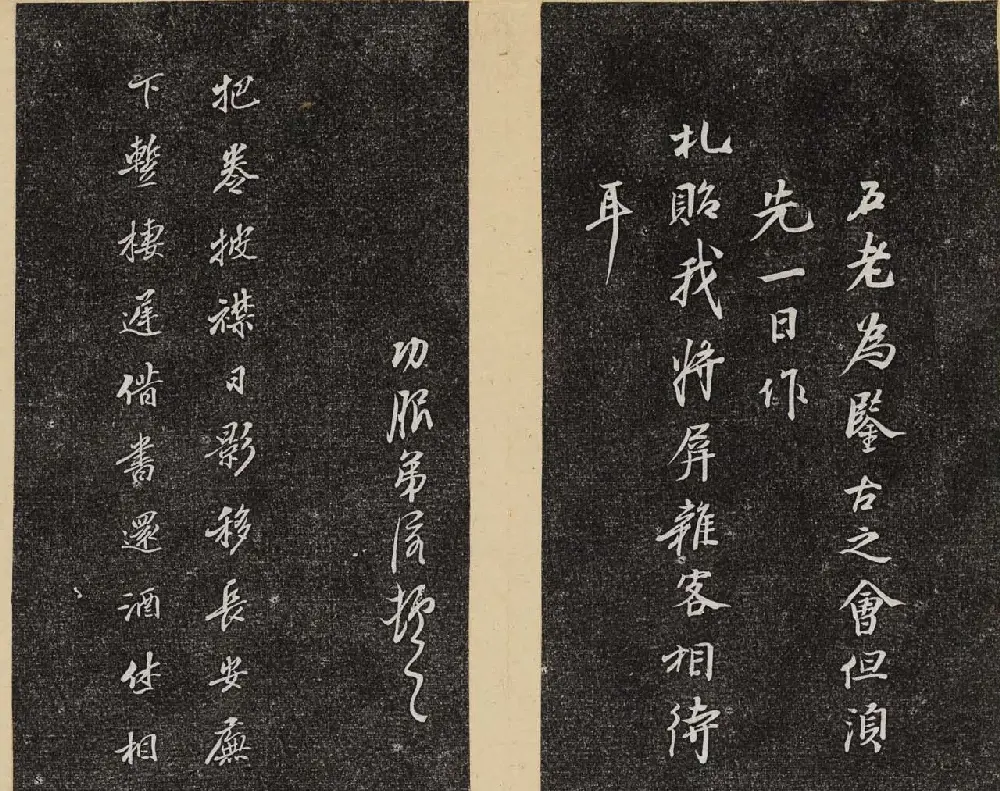 石老為鑒古之會但須
先一日作
札貽我將屏雜客相待
耳
功服弟濬頓〻
把卷披襟日影移長安廡
下暫棲遲借書還酒休相